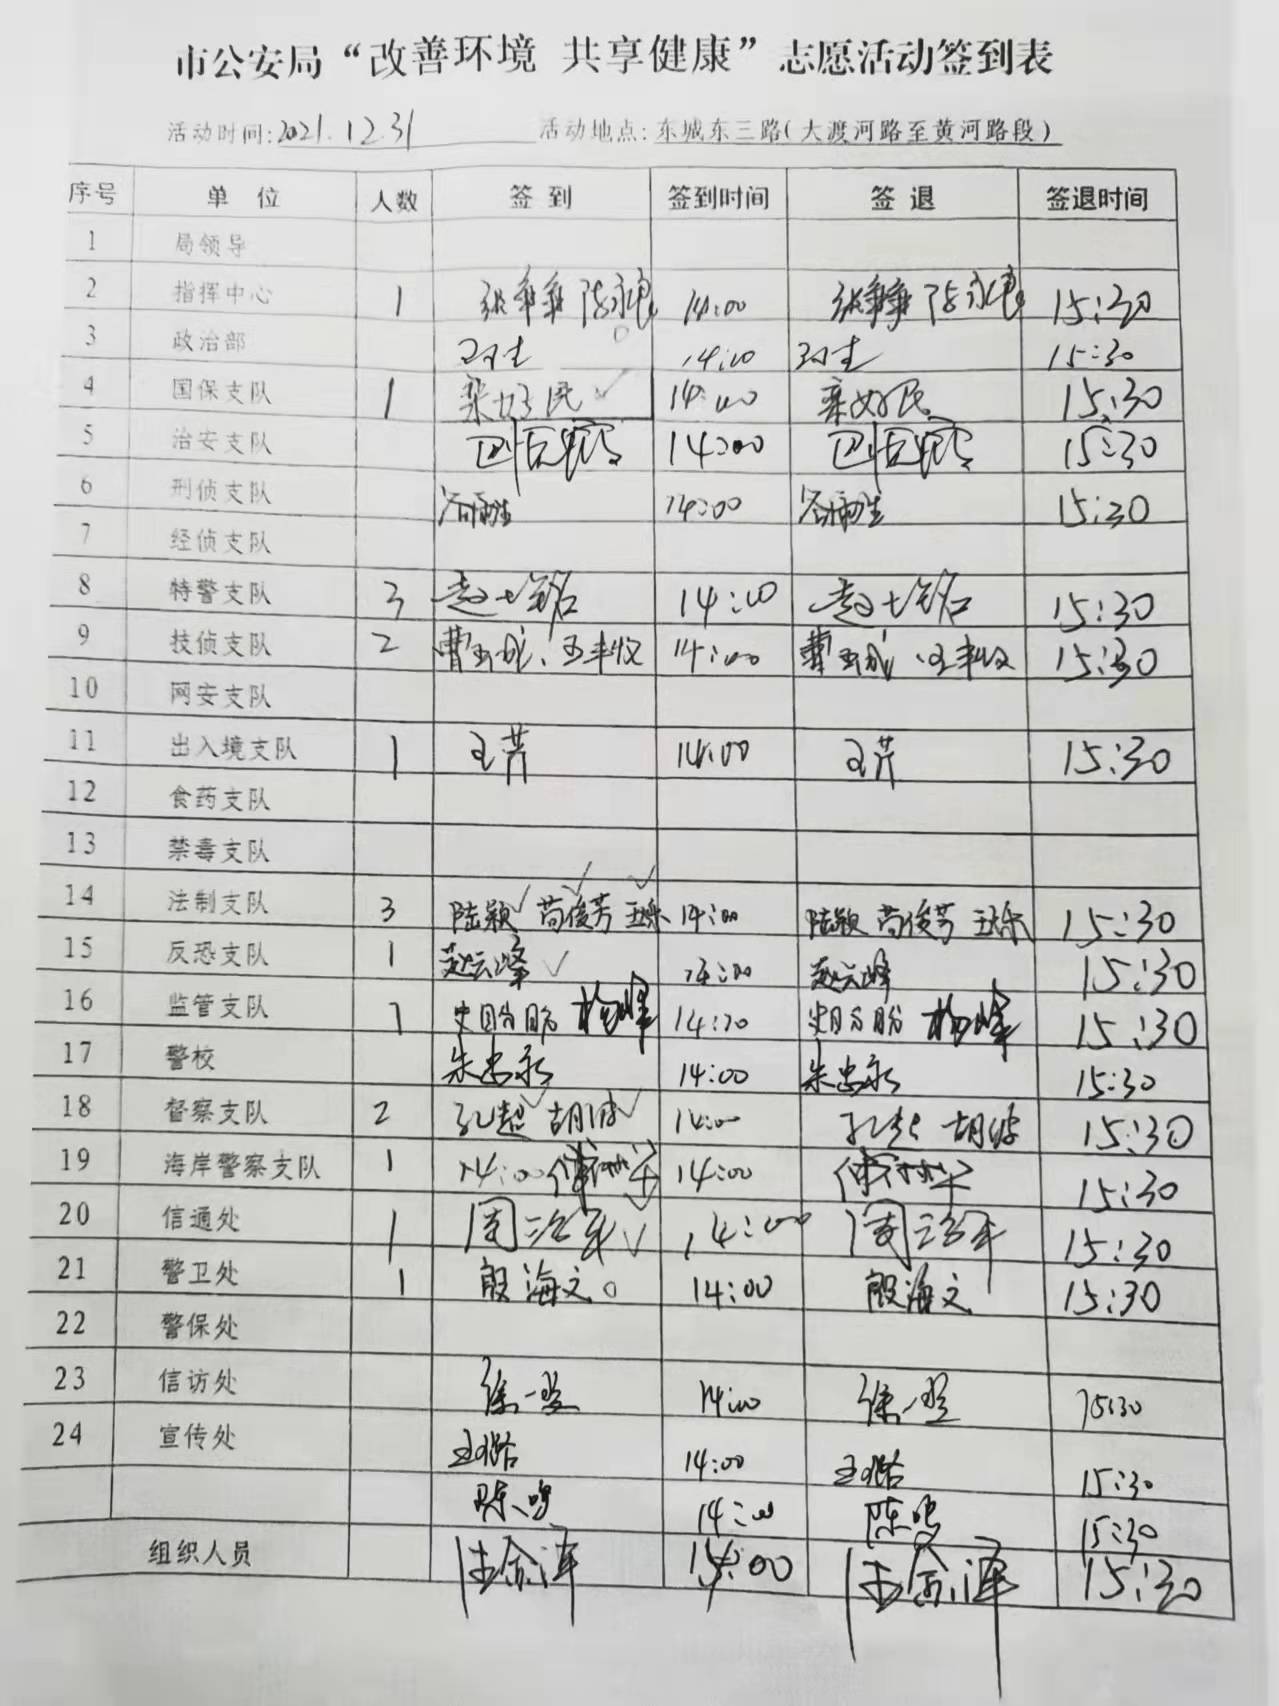 市公安局“改善环境 共享健康”志愿活动签到表
活动时间:2021.12.31 活动地点:东城东三路(大渡河路至黄河路段)
序号 单位 人数 签到 签到时间 签退 签退时间
1 局领导
2 指挥中心 1 14:00 15:30
3 政治部 14:00 15:30
4 国保支队 1 14:00 15:30
5 治安支队 14:00 15:30
6 刑侦支队 14:00 15:30
7 经侦支队
8 特警支队 3 14:00 15:30
9 技侦支队 2 曹玉成、王丰收 14:00 曹玉成、王丰收 15:30
10 网安支队
11 出入境支队 1 王芹 14:00 王芹 15:30
12 食药支队
13 禁毒支队
14 法制支队 3 陆颖 苟俊芳 王乐 14:00 陆颖 苟俊芳 王乐 15:30
15 反恐支队 1 赵云峰 14:00 赵云峰 15:30
16 监管支队 1 杨峰 杨峰 15:30
17 警校 朱忠永 14:00 朱忠永 15:30
18 督察支队 2 孔超 胡波 14:00 孔超 胡波 15:30
19 海岸警察支队 1 14:00 14:00 15:30
20 信通处 1 周治军 14:00 周治军 15:30
21 警卫处 1 殷海文 14:00 殷海文 15:30
22 警保处
23 信访处 徐一 14:00 徐一 15:30
24 宣传处 王璐 14:00 王璐 15:30
陈鸣 14:00 陈鸣 15:30
组织人员 15:30